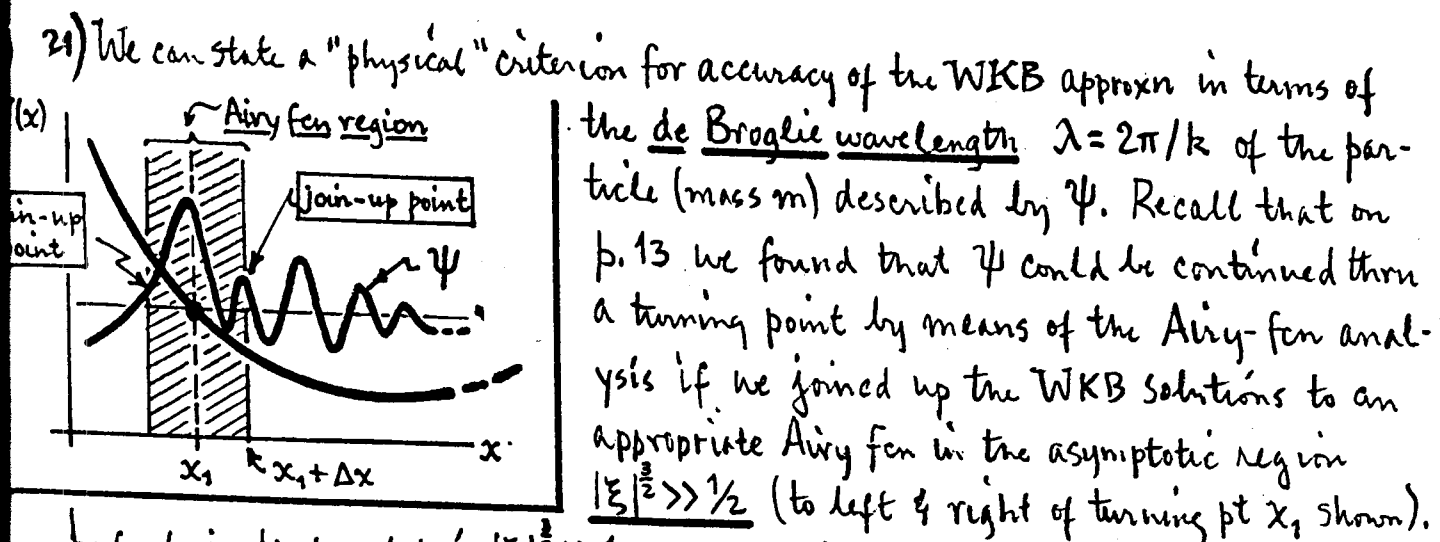 21) We can state a "physical" criterion for accuracy of the WKB approxn in terms of
the de Broglie wavelength λ = 2π/k of the par-
ticle (mass m) described by ψ. Recall that on
p. 13 we found that ψ could be continued thru
a turning point by means of the Airy-fcn anal-
ysis if we joined up the WKB solutions to an
appropriate Airy fcn in the asymptotic region
|ξ|^{3/2} >> 1/2 (to left & right of turning pt x₁ shown).
(x)
Airy fcn region
join-up point
in-up
oint
ψ
x
x₁
x₁ + Δx